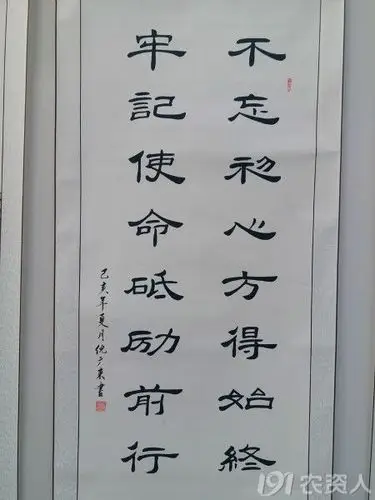 不忘初心方得始終
牢記使命砥励前行
己亥年夏月倪广来書
191农资人